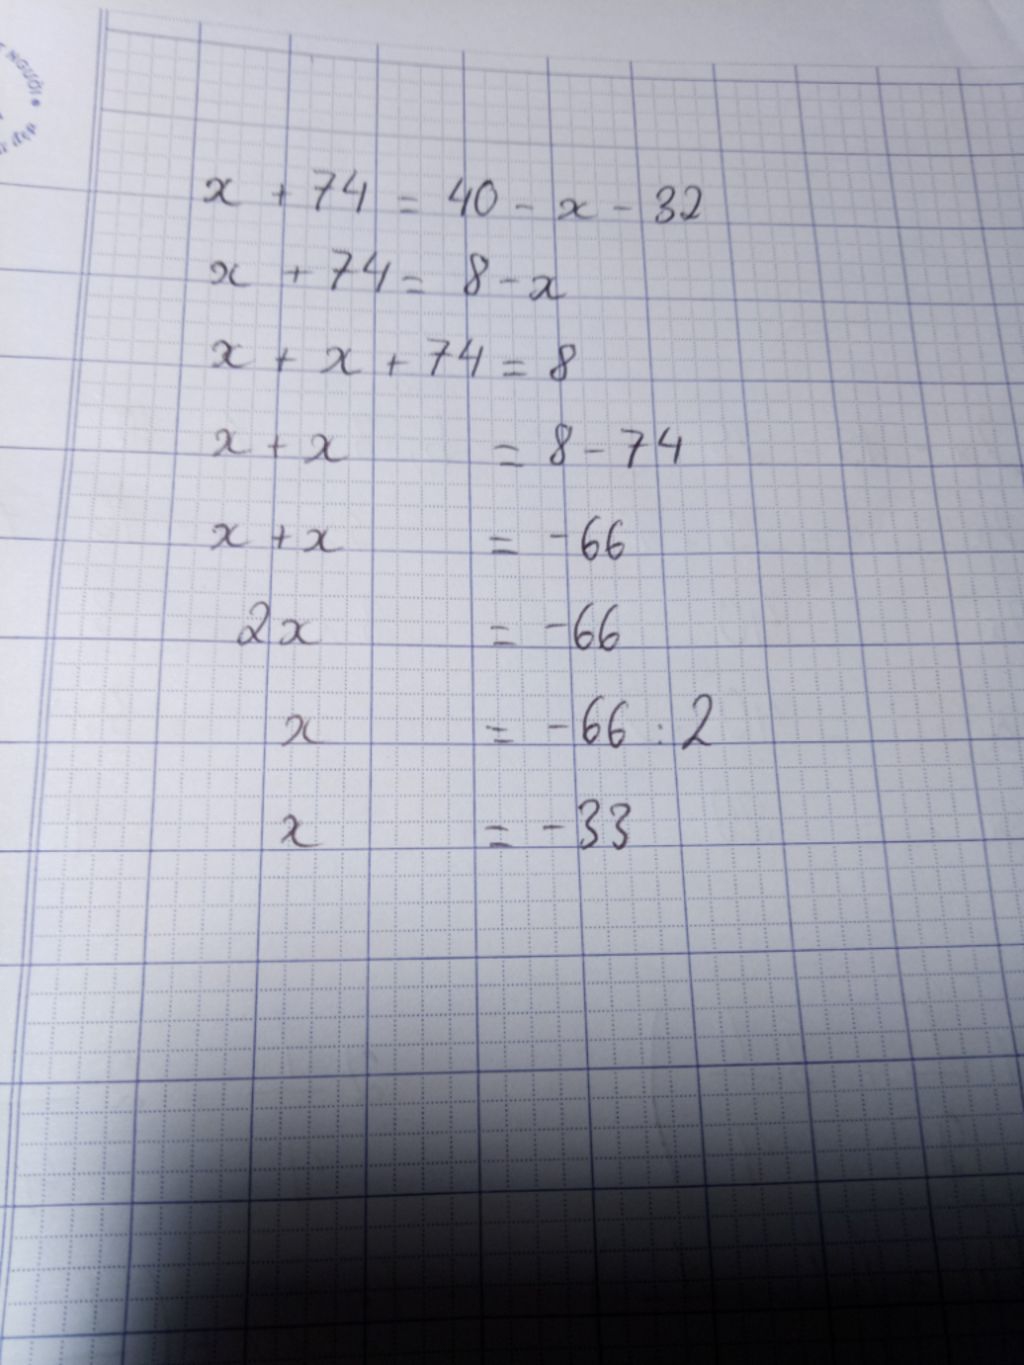 NGƯỜI
đẹp
x + 74 = 40 - x - 32
x + 74 = 8 - x
x + x + 74 = 8
x + x = 8 - 74
x + x = -66
2x = -66
x = -66 : 2
x = -33